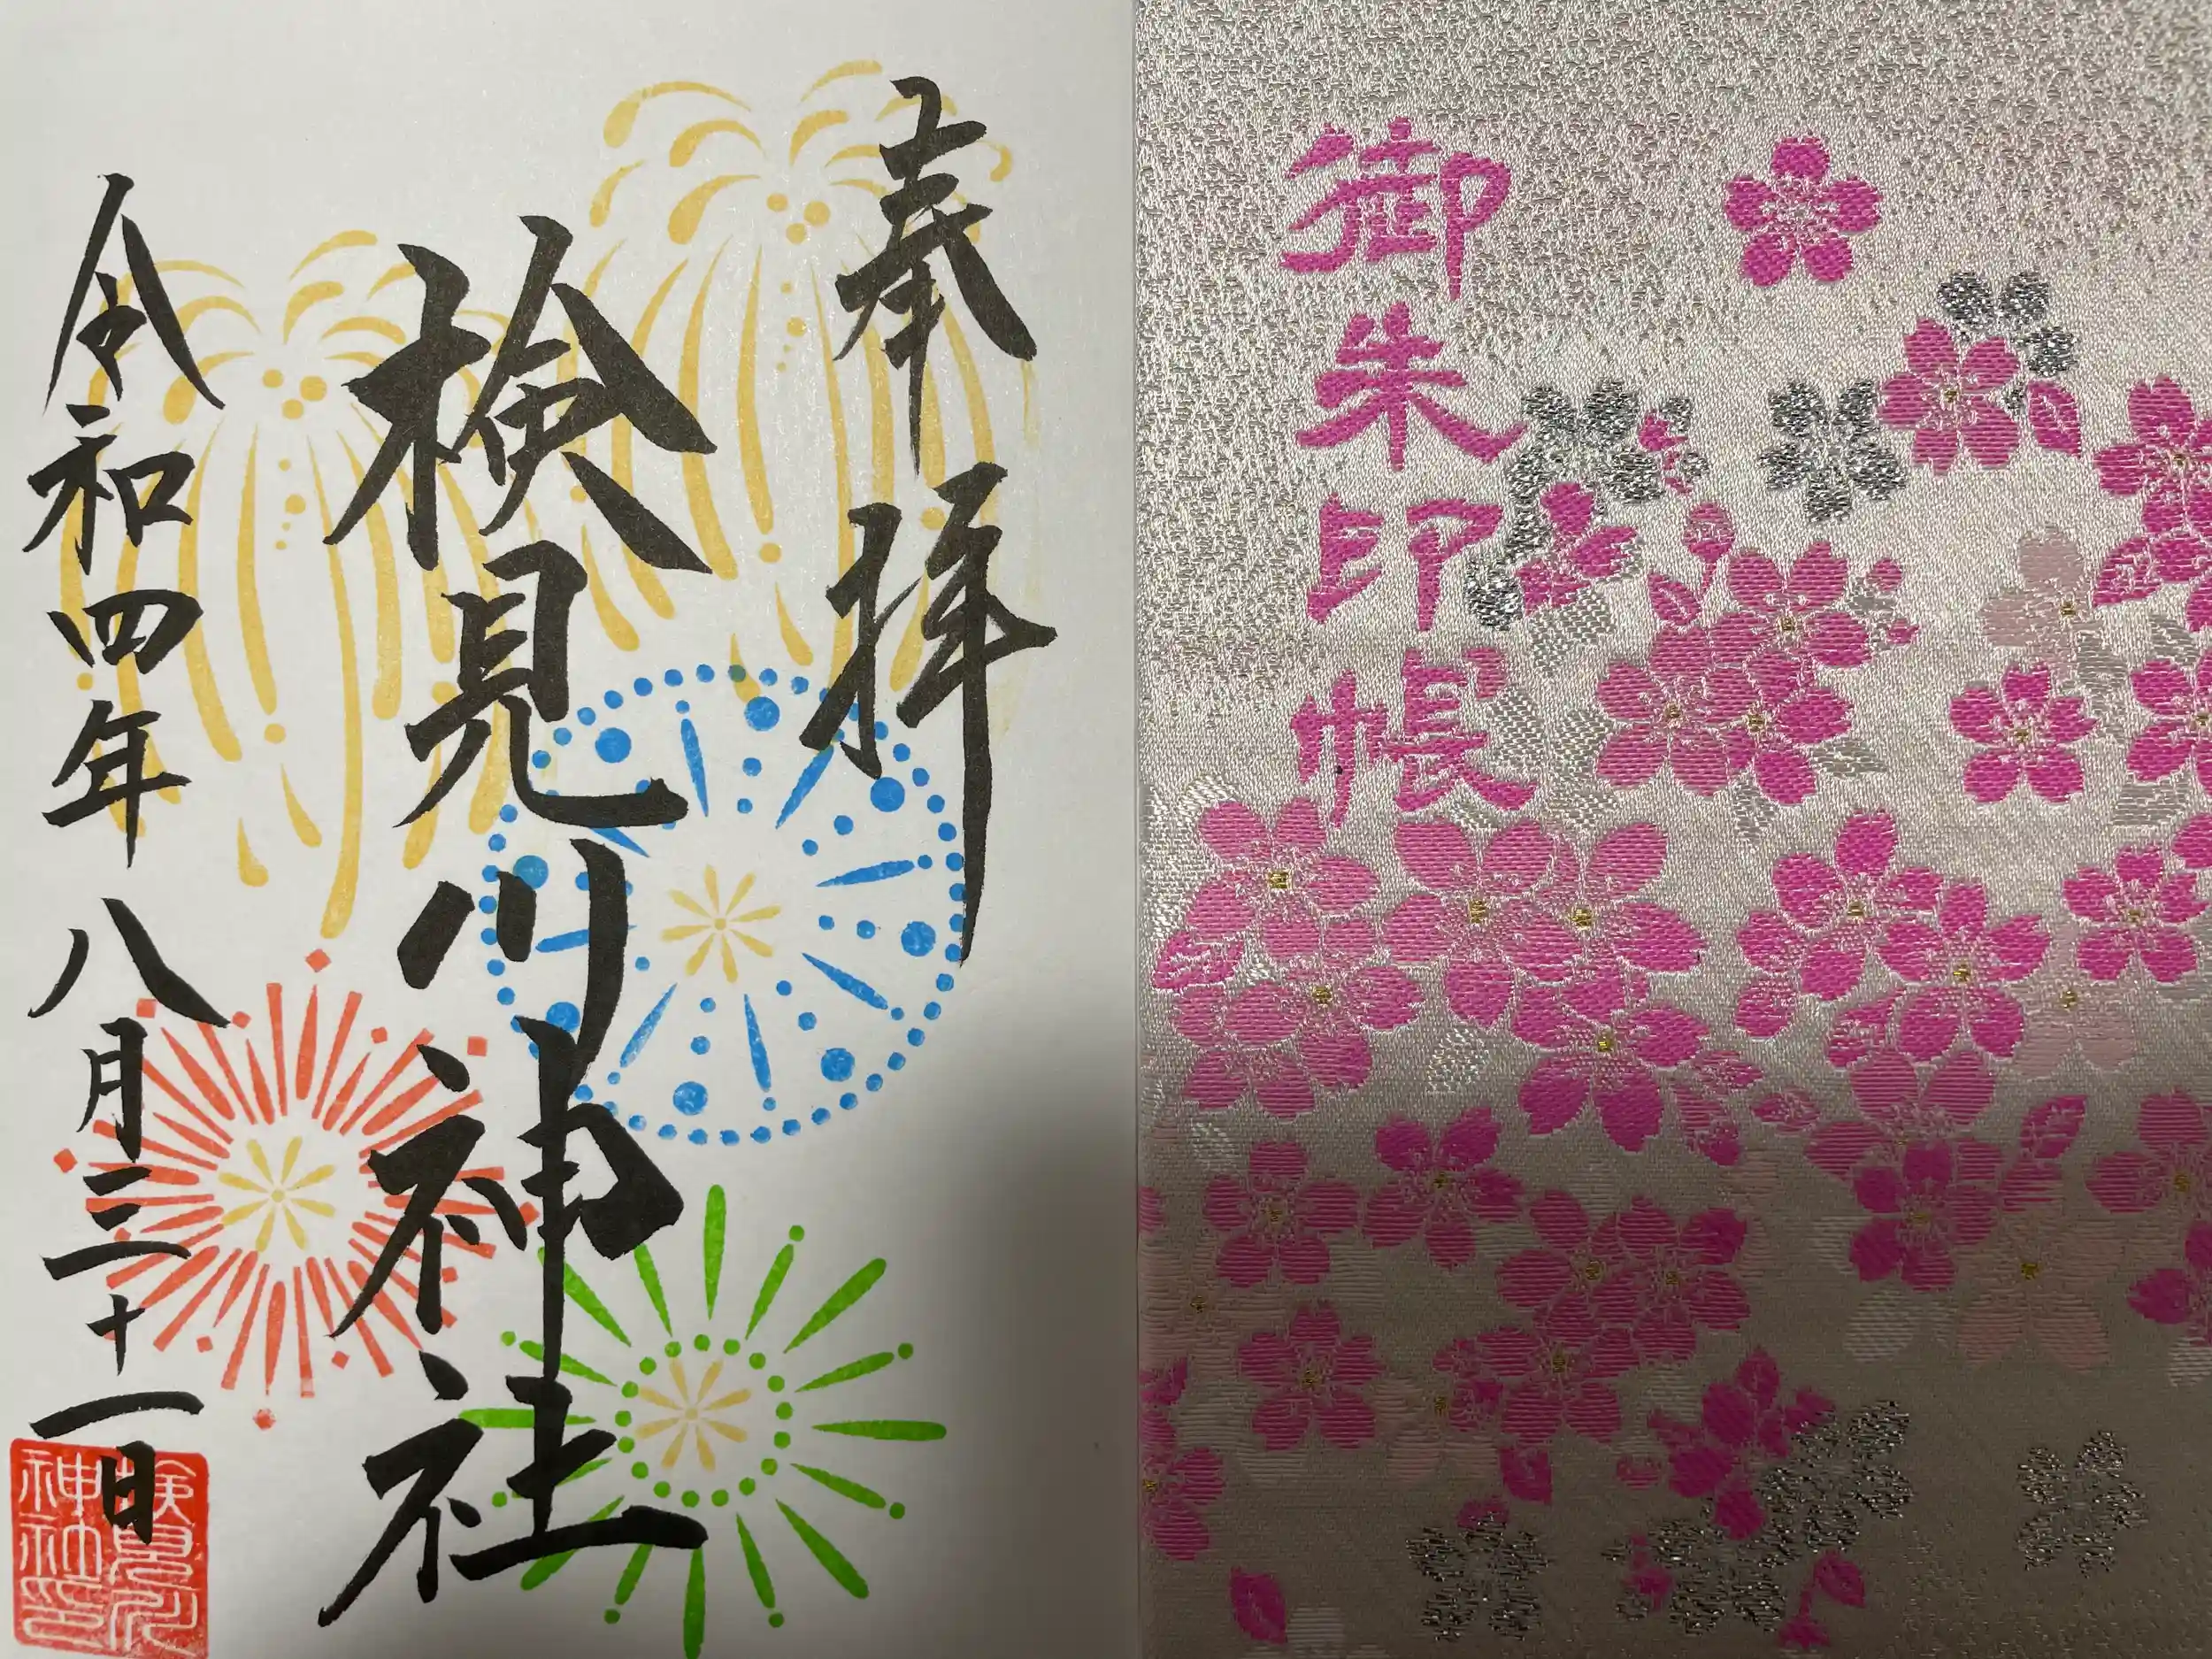 御朱印帳
奉拝
検見川神社
令和四年八月三十一日
検見川神社印